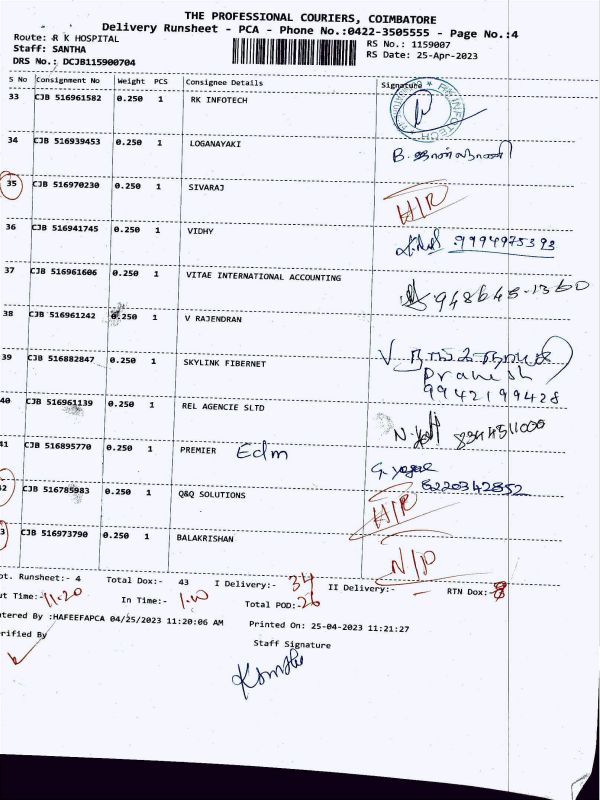 THE PROFESSIONAL COURIERS, COIMBATORE
Delivery Runsheet - PCA - Phone No.:0422-3505555 - Page No.:4
Route: R K HOSPITAL
RS No.: 1159007
Staff: SANTHA
RS Date: 25-Apr-2023
DRS No.: DCJB115900704
S No Consignment No Weight PCS Consignee Details Signature
33 CJB 516961582 0.250 1 RK INFOTECH
34 CJB 516939453 0.250 1 LOGANAYAKI
35 CJB 516970230 0.250 1 SIVARAJ H/R
36 CJB 516941745 0.250 1 VIDHY 9994975393
37 CJB 516961606 0.250 1 VITAE INTERNATIONAL ACCOUNTING
38 CJB 516961242 0.250 1 V RAJENDRAN
39 CJB 516882847 0.250 1 SKYLINK FIBERNET
9942199428
40 CJB 516961139 0.250 1 REL AGENCIE SLTD
41 CJB 516895770 0.250 1 PREMIER Edm
6220342852
42 CJB 516785983 0.250 1 Q&Q SOLUTIONS H/R
3 CJB 516973790 0.250 1 BALAKRISHAN N/P
ot. Runsheet:- 4 Total Dox:- 43 I Delivery:- 34 II Delivery:- RTN Dox:- 8
ut Time:- 11.20 In Time:- Total POD:- 26
tered By :HAFEEFAPCA 04/25/2023 11:20:06 AM Printed On: 25-04-2023 11:21:27
erified By
Staff Signature